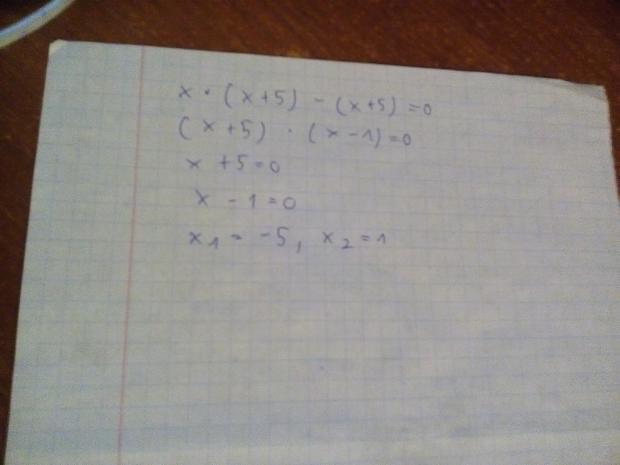 x · (x+5) - (x+5) = 0
(x+5) · (x-1) = 0
x + 5 = 0
x - 1 = 0
x₁ = -5, x₂ = 1